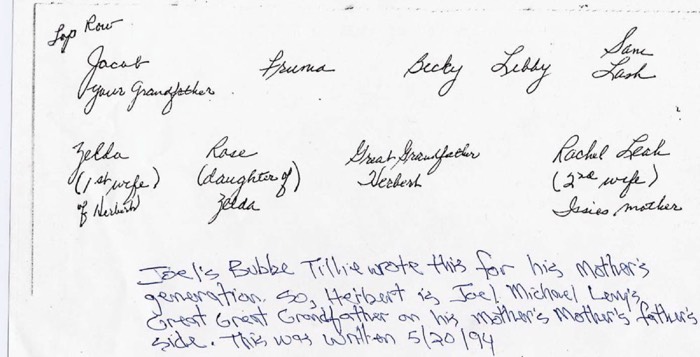 Top Row
Jacob Fruma Becky Libby Sam Lash
your Grandfather
Zelda Rose Great Grandfather Rachel Leah
(1st wife) (daughter of) Herbert (2nd wife)
of Herbert Zelda Issies mother
Joel's Bubbe Tillie wrote this for his Mother's
generation. So, Herbert is Joel Michael Levy's
Great Great Grandfather on his mother's Mother's father's
side. This was written 5/20/94